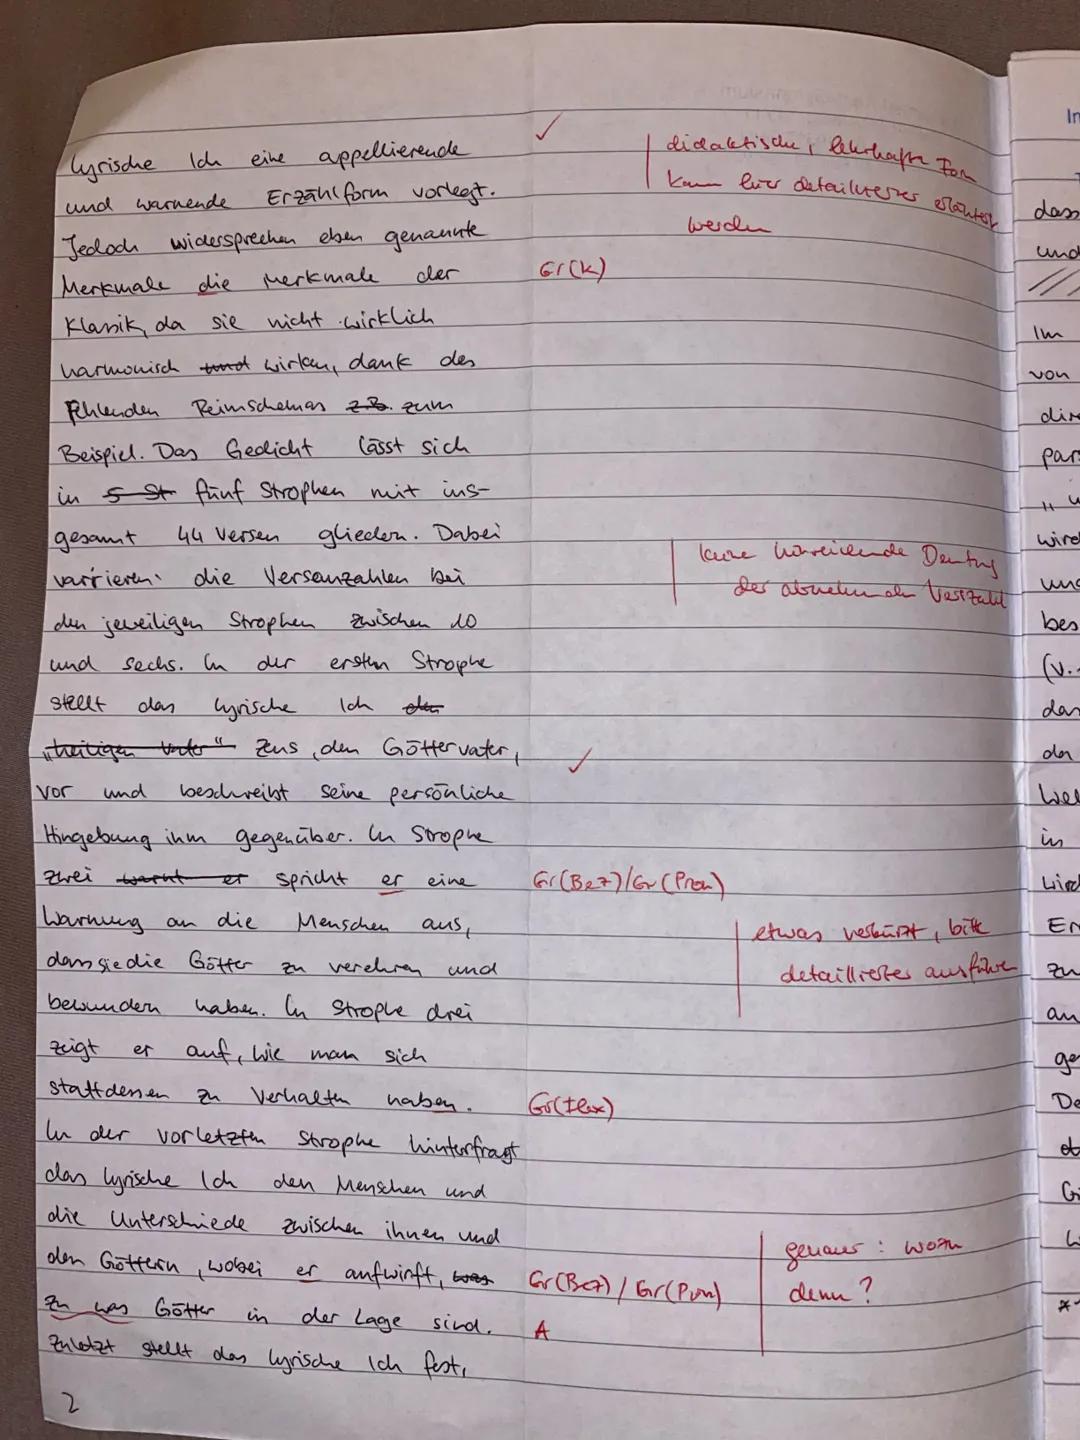 lyrische Ich eine appellierende
und warnende Erzählform vorlegt.
Jedoch widersprechen eben genannte
Merkmale die Merkmale der
Klassik, da sie nicht wirklich
harmonisch und wirken, dank des
Fehlenden Reimschemas z.B. zum
Beispiel. Das Gedicht lässt sich
in 5 St fünf Strophen mit ins-
gesamt 44 Versen gliedern. Dabei
varrieren die Versanzahlen bei
den jeweiligen Strophen zwischen 10
und sechs. In der ersten Strophe
stellt das lyrische Ich den
„heiligen Vater“ Zeus, den Göttervater,
vor und beschreibt seine persönliche
Hingebung ihm gegenüber. In Strophe
zwei warnt er spricht er eine
Warnung an die Menschen aus,
dass sie die Götter zu verehren und
bewundern haben. In Strophe drei
zeigt er auf, wie man sich
stattdessen zu Verhalten haben.
In der vorletzten Strophe hinterfragt
das lyrische Ich den Menschen und
die Unterschiede zwischen ihnen und
den Göttern, wobei er aufwirft, was
zu was Götter in der Lage sind.
Zuletzt stellt das lyrische Ich fest,
2
✓
didaktische, lehrhafte Form
kann hier detaillierter erläutert
werden
Gr(K)
keine hinreichende Deutung
der abnehmenden Verszahl
✓
Gr(Bez)/Gr(Pron)
etwas verkürzt, bitte
detaillierter ausführen
Gr(Flex)
Gr(Bez)/Gr(Pron)
genauer: wozu
denn?
A
In
dass
und
Im
von
wird
und
bes
(v.
das
da
in
wird
zu
an
ge
De